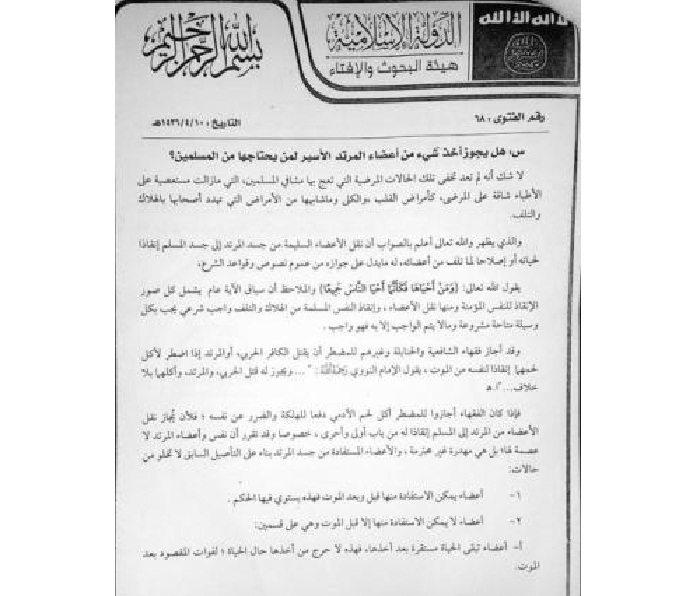 بسم الله الرحمن الرحيم
الدولة الإسلامية
هيئة البحوث والإفتاء
لا إله إلا الله
رقم الفتوى: ٦٨
التاريخ: ١٤٣٦/٤/١٠هـ
س: هل يجوز أخذ شيء من أعضاء المرتد الأسير لمن يحتاجها من المسلمين؟
لا شك أنه لم تعد تخفى تلك الحالات المرضية التي تعج بها مشافي المسلمين، التي مازالت مستعصية على
الأطباء شاقة على المرضى، كأمراض القلب والكلى وماشابهها من الأمراض التي تهدد أصحابها بالهلاك
والتلف.
والذي يظهر والله تعالى أعلم بالصواب أن نقل الأعضاء السليمة من جسد المرتد إلى جسد المسلم إنقاذا
لحياته أو إصلاحا لما تلف من أعضائه، له مايدل على جوازه من عموم نصوص وقواعد الشرع:
يقول الله تعالى: {وَمَنْ أَحْيَاهَا فَكَأَنَّمَا أَحْيَا النَّاسَ جَمِيعًا} والملاحظ أن سياق الآية عام يشمل كل صور
الإنقاذ للنفس المؤمنة ومنها نقل الأعضاء، وإنقاذ النفس المسلمة من الهلاك والتلف واجب شرعي يجب بكل
وسيلة متاحة مشروعة ومالا يتم الواجب إلا به فهو واجب.
وقد أجاز فقهاء الشافعية والحنابلة وغيرهم للمضطر أن يقتل الكافر الحربي، أوالمرتد إذا اضطر لأكل
لحمهما إنقاذا لنفسه من الموت، يقول الإمام النووي رحمه الله: "...ويجوز له قتل الحربي، والمرتد، وأكلهما بلا
خلاف..." ا.هـ
فإذا كان الفقهاء أجازوا للمضطر أكل لحم الآدمي دفعا للهلكة والضرر عن نفسه؛ فلأن يُجاز نقل
الأعضاء من المرتد إلى المسلم إنقاذا له من باب أولى وأحرى، خصوصا وقد تقرر أن نفس وأعضاء المرتد لا
عصمة لها؛ بل هي مهدرة غير محترمة، والأعضاء المستفادة من جسد المرتد بناء على التأصيل السابق لا تخلو من
حالات:
١- أعضاء يمكن الاستفادة منها قبل وبعد الموت فهذه يستوي فيها الحكم.
٢- أعضاء لا يمكن الاستفادة منها إلا قبل الموت وهي على قسمين:
أ- أعضاء تبقى الحياة مستقرة بعد أخذها، فهذه لا حرج من أخذها حال الحياة؛ لفوات المقصود بعد
الموت.